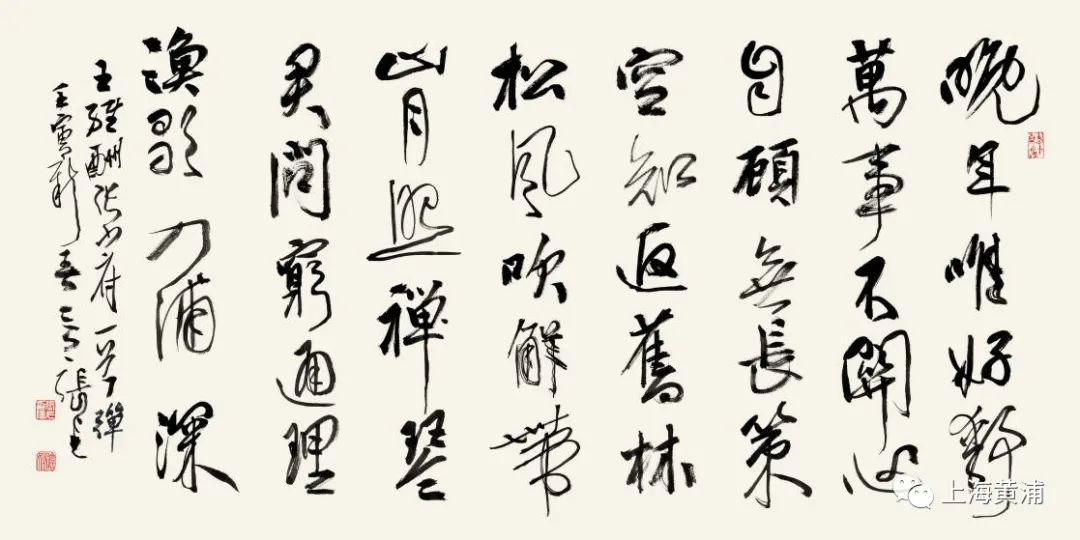 晚年唯好靜
萬事不關心
自顧無長策
空知返舊林
松風吹解帶
山月照禪琴
君問窮通理
漁歌入浦深
王維酬張少府一首 彈
壬寅新春
上海黄浦